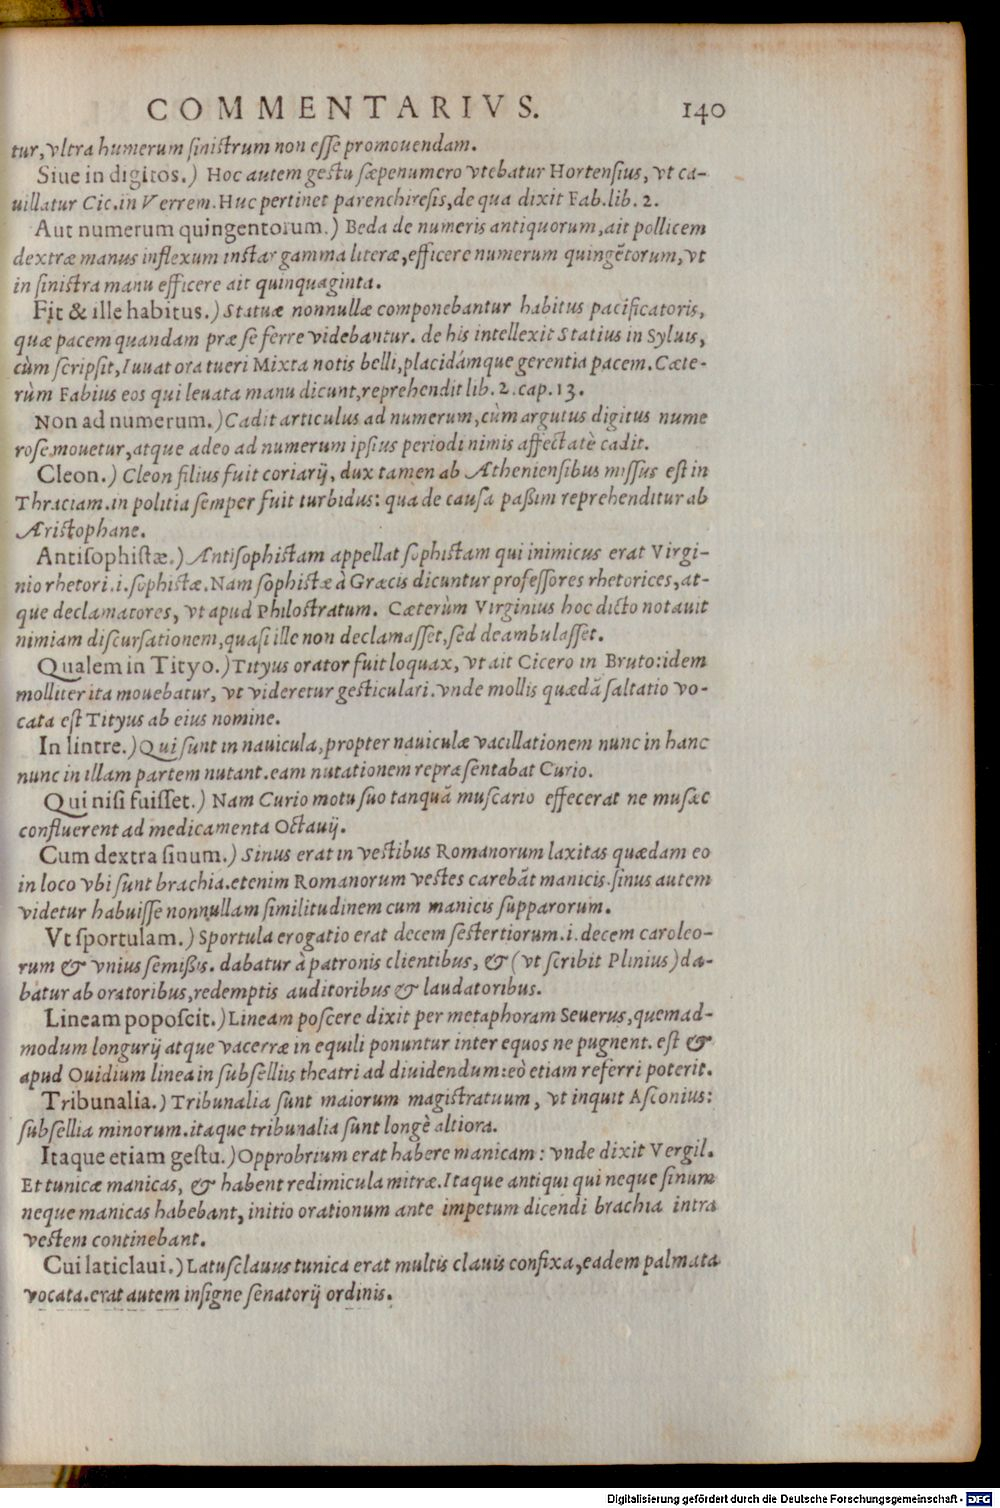 COMMENTARIVS. 140
tur, vltra humerum ſiniſtrum non eſſe promouendam.
Siue in digitos.) Hoc autem geſtu ſæpenumero vtebatur Hortenſius, vt ca-
uillatur Cic. in Verrem. Huc pertinet parenchireſis, de qua dixit Fab. lib. 2.
Aut numerum quingentorum.) Beda de numeris antiquorum, ait pollicem
dextræ manus inflexum inſtar gamma literæ, efficere numerum quingētorum, vt
in ſiniſtra manu efficere ait quinquaginta.
Fit & ille habitus.) Statuæ nonnullæ componebantur habitus pacificatoris,
quæ pacem quandam præ ſe ferre videbantur. de his intellexit Statius in Syluis,
cùm ſcripſit, Iuuat ora tueri Mixta notis belli, placidámque gerentia pacem. Cæte-
rùm Fabius eos qui leuata manu dicunt, reprehendit lib. 2. cap. 13.
Non ad numerum.) Cadit articulus ad numerum, cùm argutus digitus nume
roſe mouetur, atque adeo ad numerum ipſius periodi nimis affectatè cadit.
Cleon.) Cleon filius fuit coriarij, dux tamen ab Athenienſibus miſſus eſt in
Thraciam. in politia ſemper fuit turbidus: qua de cauſa paßim reprehenditur ab
Ariſtophane.
Antiſophiſtæ.) Antiſophiſtam appellat ſophiſtam qui inimicus erat Virgi-
nio rhetori. i. ſophiſtæ. Nam ſophiſtæ à Græcis dicuntur profeſſores rhetorices, at-
que declamatores, vt apud Philoſtratum. Cæterùm Virginius hoc dicto notauit
nimiam diſcurſationem, quaſi ille non declamaſſet, ſed deambulaſſet.
Qualem in Tityo.) Tityus orator fuit loquax, vt ait Cicero in Bruto: idem
molliter ita mouebatur, vt videretur geſticulari. vnde mollis quædā ſaltatio vo-
cata eſt Tityus ab eius nomine.
In lintre.) Qui ſunt in nauicula, propter nauiculæ vacillationem nunc in hanc
nunc in illam partem nutant. eam nutationem repræſentabat Curio.
Qui niſi fuiſſet.) Nam Curio motu ſuo tanquā muſcario effecerat ne muſæc
confluerent ad medicamenta Octauij.
Cum dextra ſinum.) Sinus erat in veſtibus Romanorum laxitas quædam eo
in loco vbi ſunt brachia. etenim Romanorum veſtes carebāt manicis. ſinus autem
videtur habuiſſe nonnullam ſimilitudinem cum manicis ſupparorum.
Vt ſportulam.) Sportula erogatio erat decem ſeſtertiorum. i. decem caroleo-
rum & vnius ſemißis. dabatur à patronis clientibus, & (vt ſcribit Plinius) da-
batur ab oratoribus, redemptis auditoribus & laudatoribus.
Lineam popoſcit.) Lineam poſcere dixit per metaphoram Seuerus, quemad-
modum longurij atque vacerræ in equili ponuntur inter equos ne pugnent. eſt &
apud Ouidium linea in ſubſelliis theatri ad diuidendum: eò etiam referri poterit.
Tribunalia.) Tribunalia ſunt maiorum magiſtratuum, vt inquit Aſconius:
ſubſellia minorum. itaque tribunalia ſunt longè altiora.
Itaque etiam geſtu.) Opprobrium erat habere manicam: vnde dixit Vergil.
Et tunicæ manicas, & habent redimicula mitræ. Itaque antiqui qui neque ſinum
neque manicas habebant, initio orationum ante impetum dicendi brachia intra
veſtem continebant.
Cui laticlaui.) Latuſclauus tunica erat multis clauis confixa, eadem palmata
vocata. erat autem inſigne ſenatorij ordinis.
Digitalisierung gefördert durch die Deutsche Forschungsgemeinschaft - DFG